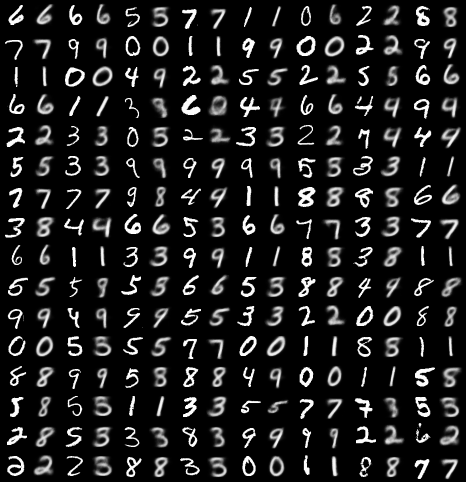 6 6 6 6 5 5 7 7 1 1 0 6 2 2 8 8
7 7 9 9 0 0 1 1 9 9 0 0 2 2 9 9
1 1 0 0 4 9 2 2 5 5 2 2 5 5 6 6
6 6 1 1 3 8 6 0 4 4 6 6 4 9 9 4
2 2 3 3 0 5 2 2 3 3 2 2 7 4 4 4
5 5 3 3 9 9 9 9 9 9 5 3 3 3 1 1
7 7 7 7 9 8 4 9 1 1 8 8 8 8 6 6
3 8 4 4 6 6 5 3 6 6 7 7 3 3 7 7
6 6 1 1 3 3 9 9 1 1 8 8 3 8 1 1
5 5 5 9 5 3 6 6 5 3 8 8 4 9 8 8
9 9 4 9 9 9 5 5 3 3 2 2 0 0 8 8
0 0 5 5 5 5 7 7 0 0 1 1 8 8 1 1
8 8 9 9 5 8 8 8 4 9 0 0 1 1 5 5
5 8 5 5 1 1 3 3 5 5 7 7 7 3 5 3
2 8 5 3 3 3 8 3 9 9 9 9 2 2 6 2
2 2 2 3 8 8 3 3 0 0 1 1 8 8 7 7